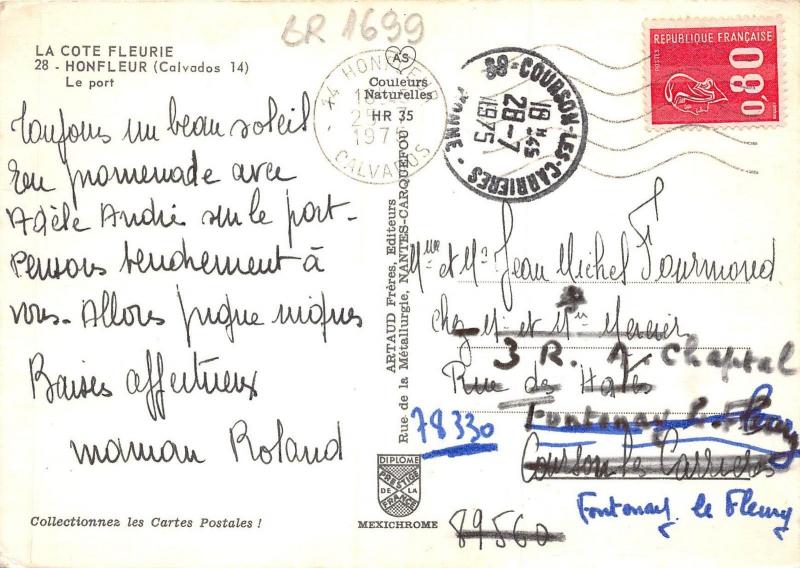 GR 1699
LA COTE FLEURIE
28 - HONFLEUR (Calvados 14)
Le port
Toujours un beau soleil
En promenade avec
Adèle André sur le port -
Pensons tendrement à
vous - Allons pique niques
Baises affectueux
maman Roland
Collectionnez les Cartes Postales !
14 HONFLEUR
CALVADOS
AS
Couleurs
Naturelles
HR 35
ARTAUD Frères, Editeurs
Rue de la Métallurgie, NANTES-CARQUEFOU
DIPLOME
PRESTIGE
DE LA
FRANCE
MEXICHROME
89-COURSON-LES-CARRIERES - YONNE
18 H 45
28-7
1975
REPUBLIQUE FRANÇAISE
POSTES
0,80
Mme et Mr Jean Michel Fourmond
chez Mr et Mme Mercier
3 R. A. Chaptal
Rue des Halles
78330 Fontenay le Fleury
Courson les Carrières
Fontenay le Fleury
89560